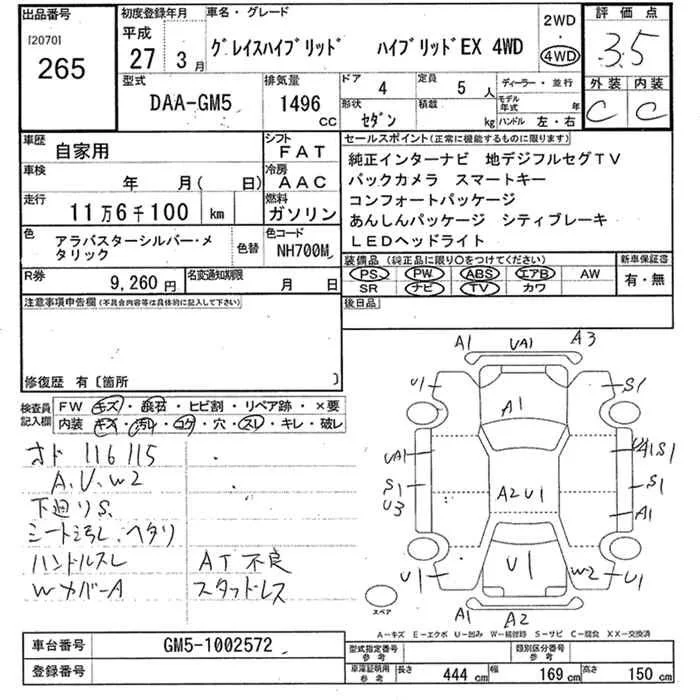 出品番号
[2070]
265
初度登録年月
平成
27 3月
車名・グレード
グレイスハイブリッド ハイブリッドEX 4WD
2WD
・
4WD
評価点
3.5
型式
DAA-GM5
排気量
1496
cc
ドア
4
定員
5人
形状
セダン
積載
kg
ディーラー・並行
モデル年式
年
ハンドル 左・右
外装
C
内装
C
車歴
自家用
シフト
FAT
車検
年 月( 日)
冷房
AAC
走行
11万6千100 km
燃料
ガソリン
色
アラバスターシルバー・メタリック
色替
色コード
NH700M
R券
9,260円
名変通知期限
月 日
セールスポイント(正常に機能するものに限ります)
純正インターナビ 地デジフルセグTV
バックカメラ スマートキー
コンフォートパッケージ
あんしんパッケージ シティブレーキ
LEDヘッドライト
装備品 (純正品に限り○をつけてください)
PS PW ABS エアB AW
SR ナビ TV カワ
新車保証書
有・無
後日品
注意事項申告欄(不具合内容等は具体的に記入して下さい)
修復歴 有〔箇所 〕
検査員記入欄
FW キズ・飛石・ヒビ割・リペア跡・×要
内装 キズ・汚レ・コゲ・穴・スレ・キレ・破レ
オド 116115
A、U、W2
下廻りS、
シート汚レ、ヘタリ
ハンドルスレ
WカバーA
AT不良
スタッドレス
A1 UA1 A3
U1 A1 S1
UA1 S1
S1 U3 A2 U1 S1
A1
U1 U1 W2 U1
A1 A2
スペア
A-キズ E-エクボ U-凹み W-補修跡 S-サビ C-腐食 XX-交換済
車台番号
GM5-1002572
登録番号
型式指定番号
参考
類別区分番号
参考
車庫証明用
参考
長さ 444 cm 幅 169 cm 高さ 150 cm